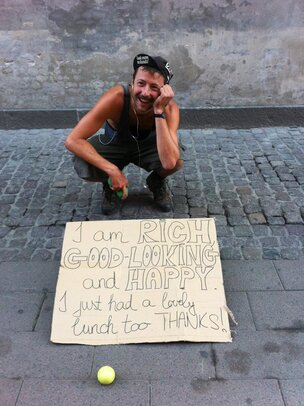 I am RICH,
GOOD-LOOKING
and HAPPY.
I just had a lovely
lunch too THANKS!!